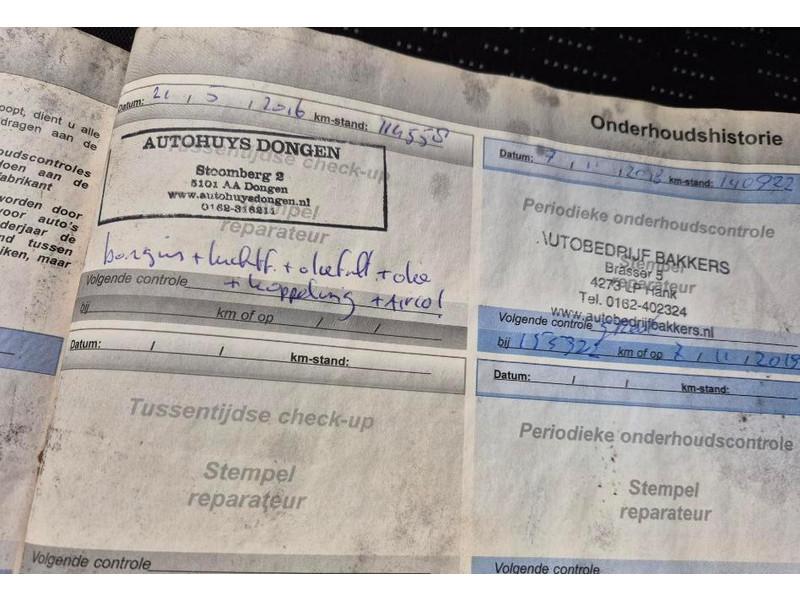 oopt, dient u alle
dragen aan de
oudscontroles
doen aan de
fabrikant
worden door
voor auto's
nderjaar de
nd tussen
iken, maar
Datum: 21, 5, 2016 km-stand: 114558
Tussentijdse check-up
AUTOHUYS DONGEN
Steomberg 2
5101 AA Dongen
www.autohuysdongen.nl
0162-316211
Stempel
reparateur
bougies + luchtf. + oliefilt. + olie
+ koppeling + Airco!
Volgende controle
bij km of op / /
Datum: / / km-stand:
Tussentijdse check-up
Stempel
reparateur
Volgende controle
Onderhoudshistorie
Datum: 7, 11, 2018 km-stand: 140922
Periodieke onderhoudscontrole
AUTOBEDRIJF BAKKERS
Brasser 5
4273 LP Hank
Tel. 0162-402324
www.autobedrijfbakkers.nl
Stempel
reparateur
Volgende controle
bij 155322 km of op 7, 11, 2019
Datum: / / km-stand:
Periodieke onderhoudscontrole
Stempel
reparateur
Volgende controle